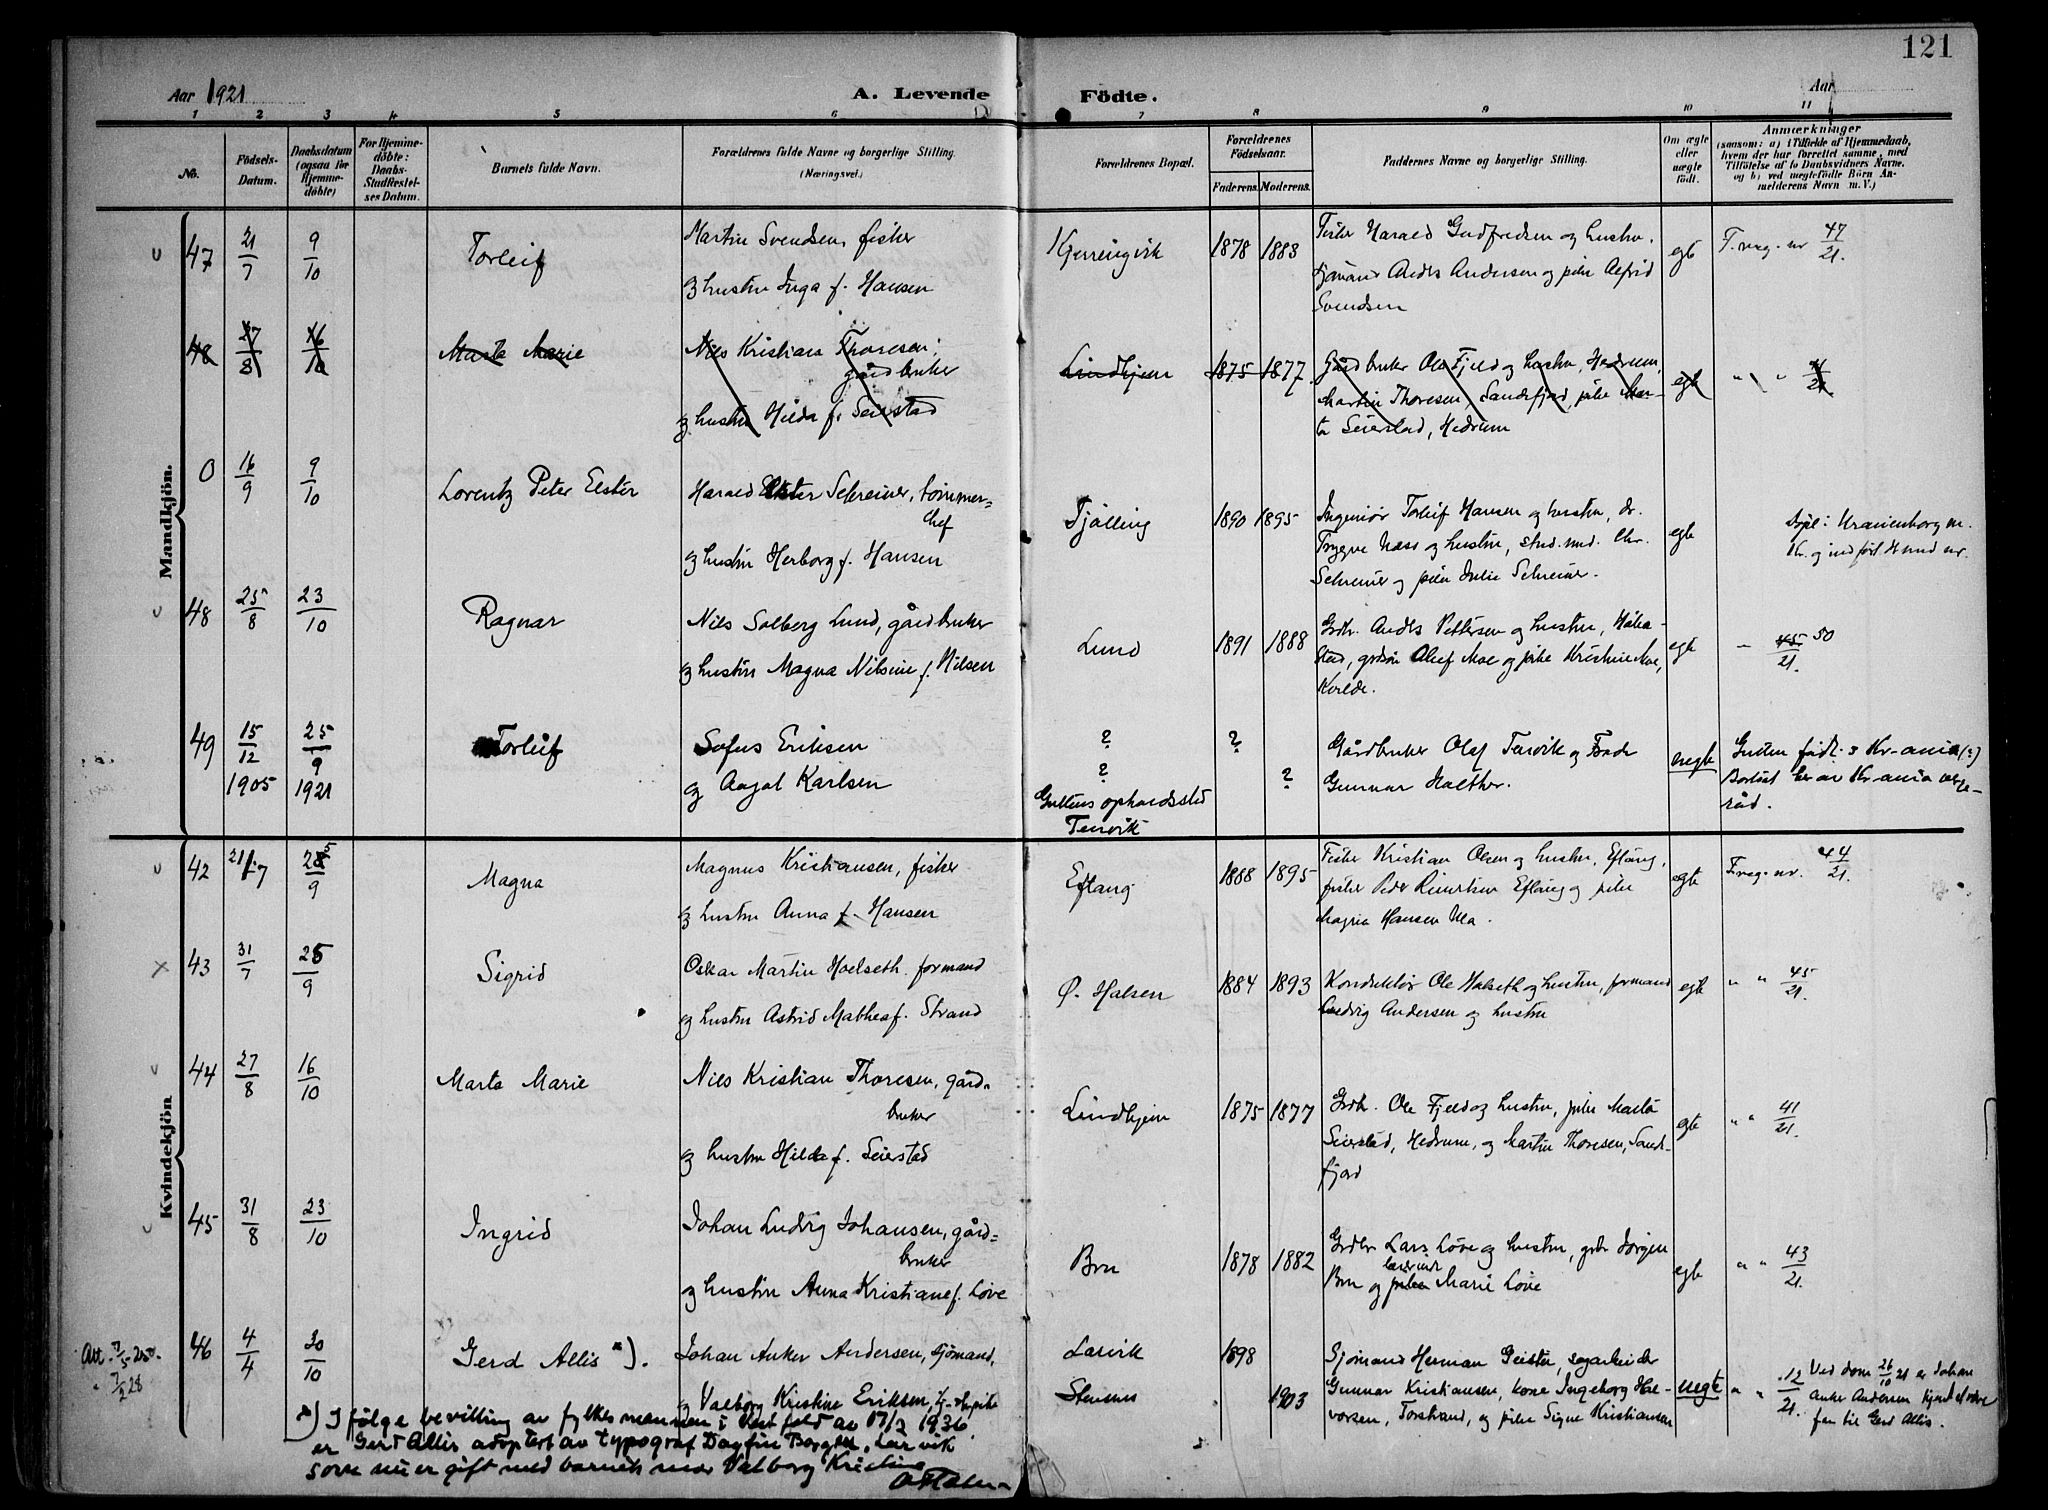 121
Aar 1921
A. Levende Födte.
Aar
1 2 3 4 5 6 7 8 9 10 11
No.
Födsels-Datum.
Daabsdatum (ogsaa for Hjemmedöbte)
For Hjemmedöbte: Daabs-Stadfæstelses Datum.
Barnets fulde Navn.
Forældrenes fulde Navne og borgerlige Stilling. (Næringsvei.)
Forældrenes Bopæl.
Forældrenes Födselsaar.
Faderens. Moderens.
Faddernes Navne og borgerlige Stilling.
Om ægte eller uægte født.
Anmærkninger
(saasom: a) i Tilfælde af Hjemmedaab, hvem der har forrettet samme, med Tilföielse af to Daabsvidners Navne. og b) ved uægtefödte Börn Anmelderens Navn m. V.)
Mandkjön.
47 21/7 9/10 Torleif
Martin Svendsen, fisker
og hustru Inga f. Hansen
Kjerringvik 1878 1883
Fisker Harald Gudfredsen og hustru,
Anders Andersen og pike Alfrid
Svendsen
egte F. reg. nr 47/21.
48 27/8 16/10 Marta Marie
Nils Kristian Thoresen,
gårdbruker
og hustru Hilda f. Seierstad
Lindhjem 1875 1877
Gårdbruker Ole Fjeld og hustru, Hedrum,
Martin Thoresen, Sandefjord, pike Mar-
ta Seierstad, Hedrum
egte " " 41/21
0 16/9 9/10 Lorentz Peter Elster
Harald Elster Schreiner, tømmer=
chef
og hustru Herborg f. Hansen
Tjølling 1890 1895
Ingeniør Torleif Hansen og hustru, dr.
Trygve Næss og hustru, stud. med. Chr.
Schreiner og pike Julie Schreiner.
egte
Døpt i Uranienborg m.
Kr. og indført der med nr.
48 25/8 23/10 Ragnar
Nils Solberg Lund, gårdbruker
og hustru Magna Nilsine f. Nilsen
Lund 1891 1888
Grdbr. Anders Pettersen og hustru, Håka-
stad, Oluf Moe og pike Kristine Moe,
egte " 45/21. 50
49 15/12 1905 25/9 1921 Torleif
Sofus Eriksen
og Aagot Karlsen
? ?
? ?
Guttens opholdssted
Tenvik
Gårdbruker Olaf Tenvik og
Gunnar Halther.
uegte
Gutten født i Kr-ania (?)
Bortsat her av Kr-ania verge-
råd.
Kvindekjön
42 21/7 25/9 Magna
Magnus Kristiansen, fisker
og hustru Anna f. Hansen
Eftang 1888 1895
Fisker Kristian Olsen og hustru, Eftang,
fisker Peder Eftang og pike
Magna Hansen Ula.
egte F. reg. nr. 44/21.
43 31/7 25/9 Sigrid
Oskar Martin Holseth, formand
og hustru Astrid Mathea f. Strand
Ø. Halsen 1884 1893
Konduktør Ole Holseth og hustru, formand
Ludvig Andersen og hustru
egte " " 45/21.
44 27/8 16/10 Marta Marie
Nils Kristian Thoresen, gård-
bruker
og hustru Hilda f. Seierstad
Lindhjem 1875 1877
Grdb. Ole Fjeld og hustru, pike Marta
Seierstad, Hedrum, og Martin Thoresen, Sande-
fjord
egte " " 41/21.
45 31/8 23/10 Ingrid
Johan Ludvig Johansen, gård=
bruker
og hustru Anna Kristiane f. Løve
Bru 1878 1882
Grdbr Lars Løve og hustru, grdbr Jørgen
Bru og lærerinde Marie Løve
egte " " 43/21.
46 4/4 30/10 Gerd Allis *).
Johan Anker Andersen, sjømand,
og Valborg Kristine Eriksen,
Larvik 1898
1903
Sjømand Herman Geister, sagarbeider
Gunnar Kristiansen, kone Ingeborg Hal-
vorsen, Torstrand, og pike Signe Kristiansen
uegte " " 12/21.
Ved dom 26/10 21 er Johan
Anker Andersen kjent at være
far til Gerd Allis.
*) I følge bevilling av fylkesmannen i Vestfold av 17/2 1936
er Gerd Allis adoptert av typograf Dagfin Borgen, Larvik
som nu er gift med barnets mor Valborg Kristine